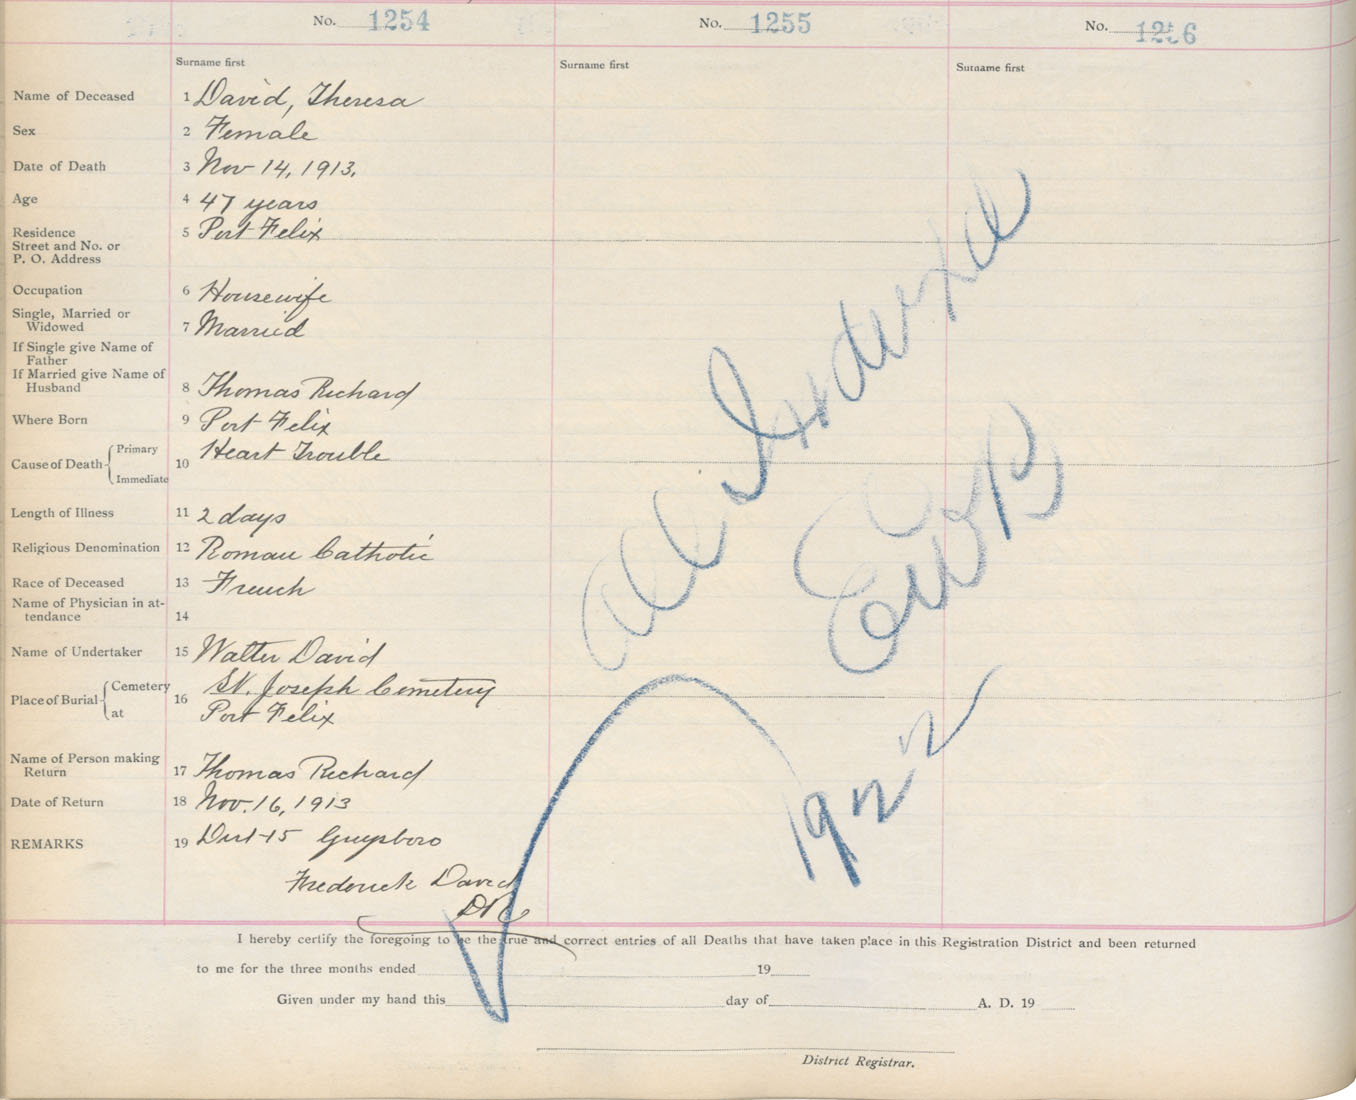 No. 1254
No. 1255
No. 1256
Surname first
Surname first
Surname first
Name of Deceased 1 David, Theresa
Sex 2 Female
Date of Death 3 Nov 14, 1913.
Age 4 47 years
Residence 5 Port Felix
Street and No. or
P. O. Address
Occupation 6 Housewife
Single, Married or
Widowed 7 Married
If Single give Name of
Father
If Married give Name of
Husband 8 Thomas Richard
Where Born 9 Port Felix
Cause of Death Primary 10 Heart Trouble
Immediate
Length of Illness 11 2 days
Religious Denomination 12 Roman Catholic
Race of Deceased 13 French
Name of Physician in at-
tendance 14
Name of Undertaker 15 Walter David
Place of Burial Cemetery 16 St. Joseph Cemetery
at Port Felix
Name of Person making
Return 17 Thomas Richard
Date of Return 18 Nov. 16, 1913
REMARKS 19 Dist 15 Guysboro
Frederick David
DR
all Indexed
1922
I hereby certify the foregoing to be the true and correct entries of all Deaths that have taken place in this Registration District and been returned
to me for the three months ended 19
Given under my hand this day of A. D. 19
District Registrar.